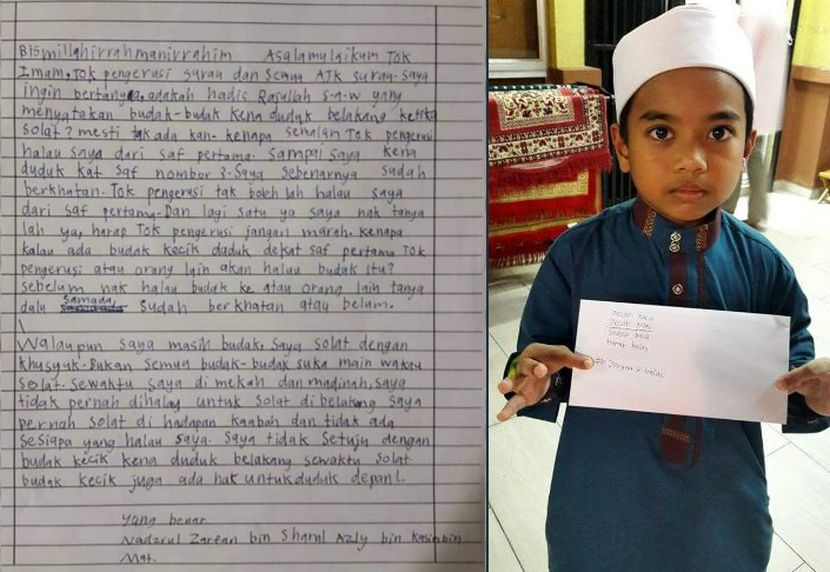 Bismillahirrahmanirrahim Asalamulaikum Tok
Imam, Tok pengerusi surau dan semua AJK surau. Saya
ingin bertanya, adakah hadis Rasullah s-a-w yang
menyatakan budak-budak kena duduk belakang ketika
solat? mesti tak ada kan. kenapa semalam Tok pengerusi
halau saya dari saf pertama. Sampai saya kena
duduk kat saf nombor 3. Saya sebenarnya sudah
berkhatan. Tok pengerusi tak boleh lah halau saya
dari saf pertama. Dan lagi satu ya saya nak tanya
lah ya, harap Tok pengerusi jangan marah. kenapa
kalau ada budak kecik duduk dekat saf pertama Tok
pengerusi atau orang lain akan halau budak itu?
sebelum nak halau budak ke atau orang lain tanya
dalu samada, sudah berkhatan atau belum.
Walaupun saya masih budak, saya solat dengan
khusyuk. Bukan semua budak-budak suka main waktu
solat. Sewaktu saya di mekah dan madinah, saya
tidak pernah dihalau untuk solat di belakang saya
pernah solat di hadapan kaabah dan tidak ada
sesiapa yang halau saya. saya tidak setuju dengan
budak kecik kena duduk belakang sewaktu solat.
budak kecik juga ada hak untuk duduk depan!.
Yang benar
Nadzrul Zarfan bin Sharul Azly bin Kasim bin
Mat.
harap balas